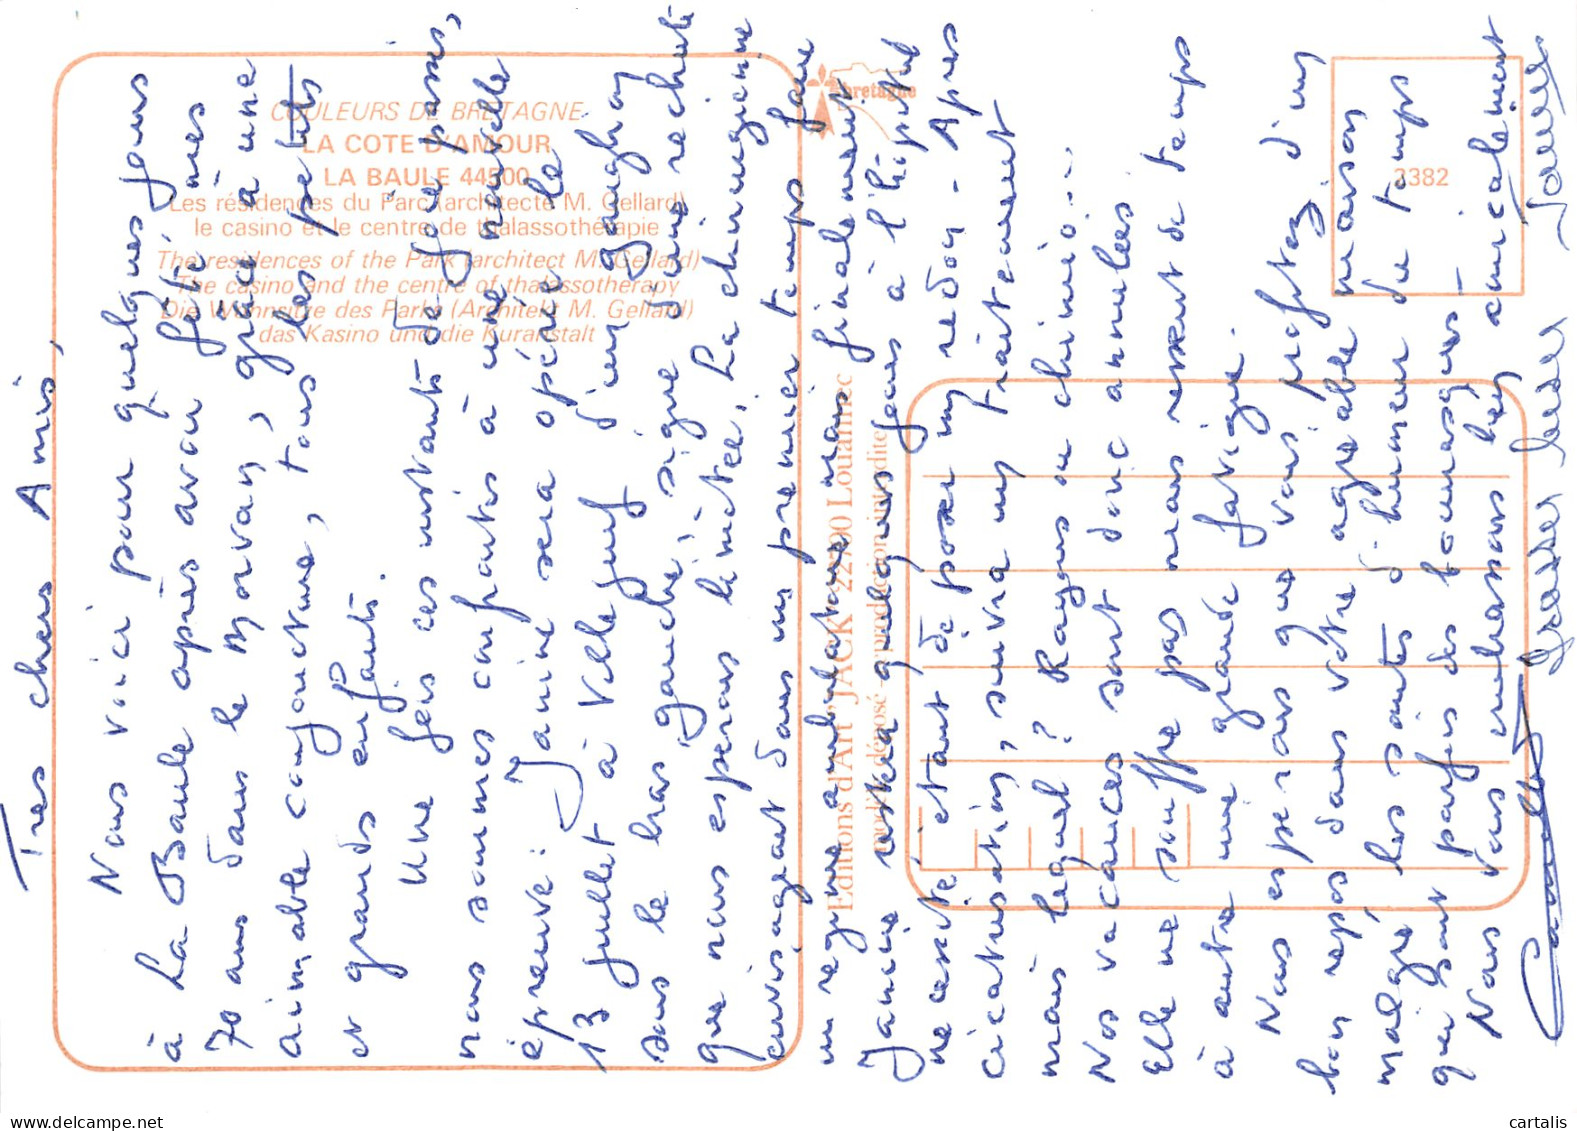 Très chers Amis,
Nous voici pour quelques jours
à La Baule après avoir fêté mes
70 ans dans le Morvan, grâce à une
aimable conjoncture, tous les petits
et grands enfants.
Une fois ces instants de joie passés,
nous sommes confrontés à une nouvelle
épreuve : Janine sera opérée le
13 juillet à Villejuif d'un ganglion
sous le bras gauche, signe d'une rechute
que nous espérons limitée. La chirurgienne
envisageait dans un premier temps faire
un régime ambulatoire mais finalement
Janine restera quelques jours à l'hôpital
nécessité étant de poser un redon - Après
cicatrisation, suivra un traitement
mais lequel ? Rayons ou chimio...
Nos vacances sont donc annulées
Elle ne souffre pas mais ressent de temps
à autre une grande fatigue.
Nous espérons que vous profitez d'un
bon repos dans votre agréable maison
malgré les sautes d'humeur du temps
qui sont parfois des bourrasques -
Nous vous embrassons bien amicalement
COULEURS DE BRETAGNE
LA COTE D'AMOUR
LA BAULE 44500
Les résidences du Parc (architecte M. Gellard)
le casino et le centre de thalassothérapie
The residences of the Park (architect M. Gellard)
The casino and the centre of thalassotherapy
Die Wohnsitze des Parks (Architekt M. Gellard)
das Kasino und die Kuranstalt
bretagne
3382
Editions d'Art "JACK" 22700 Louannec
modèle déposé - reproduction interdite
cartalis